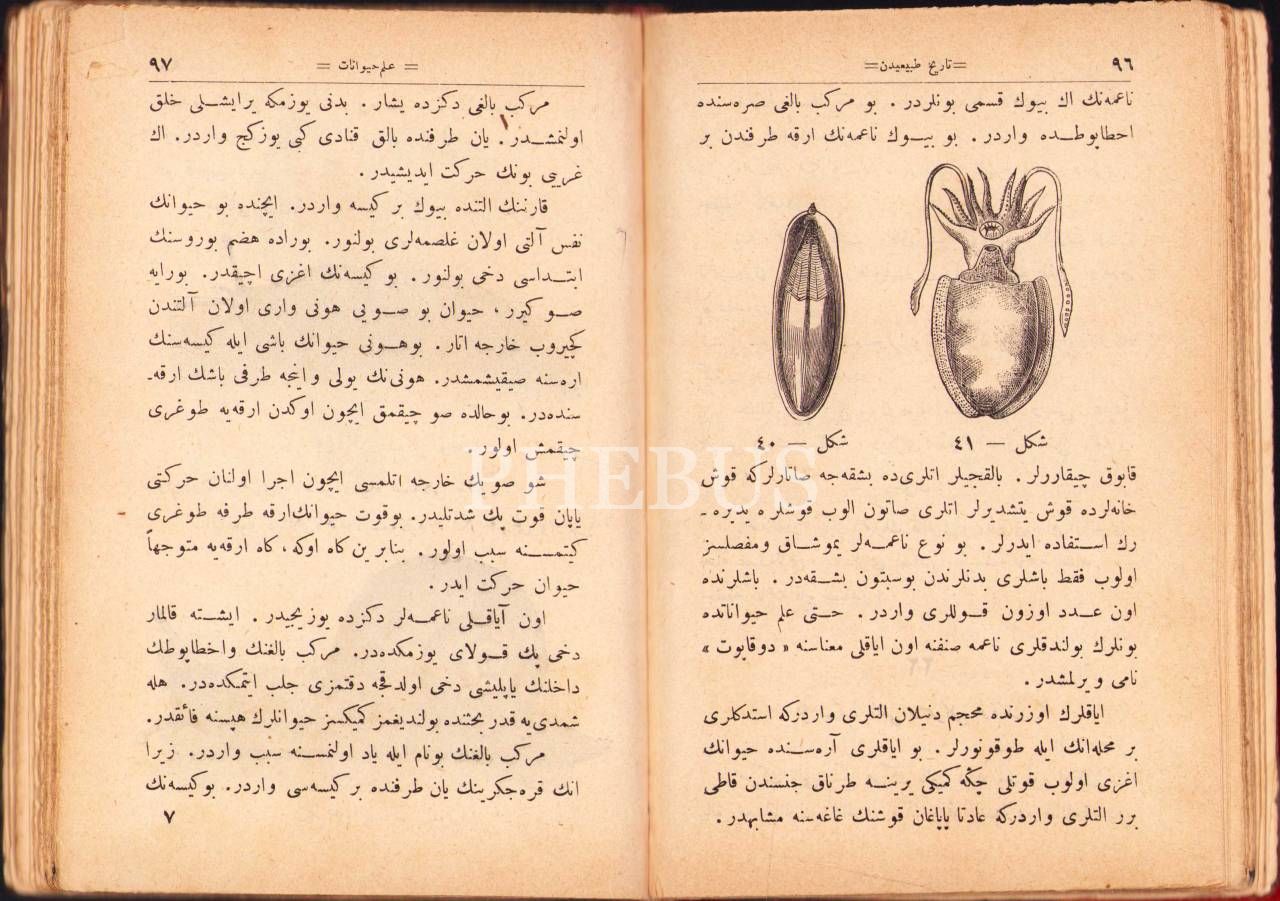 ٩٦
= تاريخ طبيعيدن =
ناعمه‌نك اك بيوك قسمى بونلردر . بو مركب بالغى صره‌سنده
احطاپوطده واردر . بو بيوك ناعمه‌نك ارقه طرفندن بر
شكل — ٤١
شكل — ٤٠
قابوق چيقاررلر . بالقجيلر اتلرى‌ده بشقه‌جه صاتارلركه قوش
خانه‌لرده قوش يتشديرلر اتلرى صاتون الوب قوشلره يديره -
رك استفاده ايدرلر . بو نوع ناعمه‌لر يموشاق ومفصلسز
اولوب فقط باشلرى بدنلرندن بوسبتون بشقه‌در . باشلرنده
اون عدد اوزون قوللرى واردر . حتى علم حيواناتده
بونلرك بولندقلرى ناعمه صنفنه اون اياقلى معناسنه « دوقاپوت »
نامى ويرلمشدر .
اياقلرك اوزرنده محجم دنيلان التلرى واردركه استدكلرى
بر محله‌انك ايله طوقونورلر . بو اياقلرى آره‌سنده حيوانك
اغزى اولوب قوتلى چكه كميكى يرينه طرناق جنسندن قاطى
برر التلرى واردركه عادتا پاپاغان قوشنك غاغه‌سنه مشابهدر .
= علم حيوانات =
٩٧
مركب بالغى دكزده يشار . بدنى يوزمكه يرايشلى خلق
اولنمشدر . يان طرفنده بالق قنادى كبى يوزكج واردر . اك
غريبى بونك حركت ايديشيدر .
قارننك التنده بيوك بر كيسه واردر . ايچنده بو حيوانك
نفس آلتى اولان غلصمه‌لرى بولنور . بوراده هضم بوروسنك
ابتداسى دخى بولنور . بو كيسه‌نك اغزى اچيقدر . بورايه
صو كيرر ، حيوان بو صويى هونى وارى اولان آلتندن
كچيروب خارجه اتار . بوهونى حيوانك باشى ايله كيسه‌سنك
اره‌سنه صيقيشمشدر . هونى‌نك يولى واينجه طرفى باشك ارقه-
سنده‌در . بوحالده صو چيقمق ايچون اوكدن ارقه‌يه طوغرى
چيقمش اولور .
شو صويك خارجه اتلمسى ايچون اجرا اولنان حركتى
ياپان قوت پك شدتليدر . بوقوت حيوانك‌ارقه طرفه طوغرى
كيتمسنه سبب اولور . بنابرين كاه اوكه ، كاه ارقه‌يه متوجهاً
حيوان حركت ايدر .
اون آياقلى ناعمه‌لر دكزده يوزيجيدر . ايشته قالمار
دخى پك قولاى يوزمكده‌در . مركب بالغنك واخطاپوطك
داخلنك ياپليشى دخى اولدقجه دقتمزى جلب ايتمكده‌در . هله
شمدى‌يه قدر بحثنده بولنديغمز كميكسز حيوانلرك هپسنه فائقدر .
مركب بالغنك بونام ايله ياد اولنمسنه سبب واردر . زيرا
انك قره‌جكرينك يان طرفنده بر كيسه‌سى واردر . بوكيسه‌نك
٧
PHEBUS